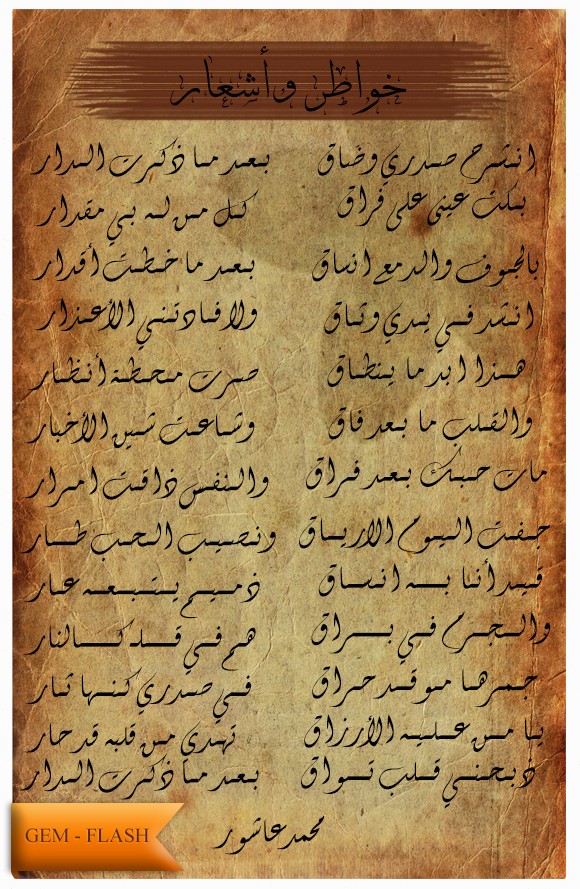 خواطر وأشعار
انشرح صدري وضاق بعد ما ذكرت الدار
بكت عيني على فراق كل من له بي مقدار
بالجوف والدمع انساق بعد ما خطت أقدار
انشد في يدي وثاق ولا فادتني الأعذار
هذا ابد ما ينطاق صرت محطة أنظار
والقلب ما بعد فاق وشاعت شين الأخبار
مات حبك بعد فراق والنفس ذاقت امرار
جفت اليوم الارياق ونصيب الحب طار
قيد أنا به انساق ذميم يتبعه عار
والجرم في براق هم في قلد كالنار
جمرها موقد حراق في صدري كنها ثار
يا من عليه الأرزاق تهدي من قلبه قد حار
ذبحني قلب تواق بعد ما ذكرت الدار
محمد عاشور
GEM - FLASH